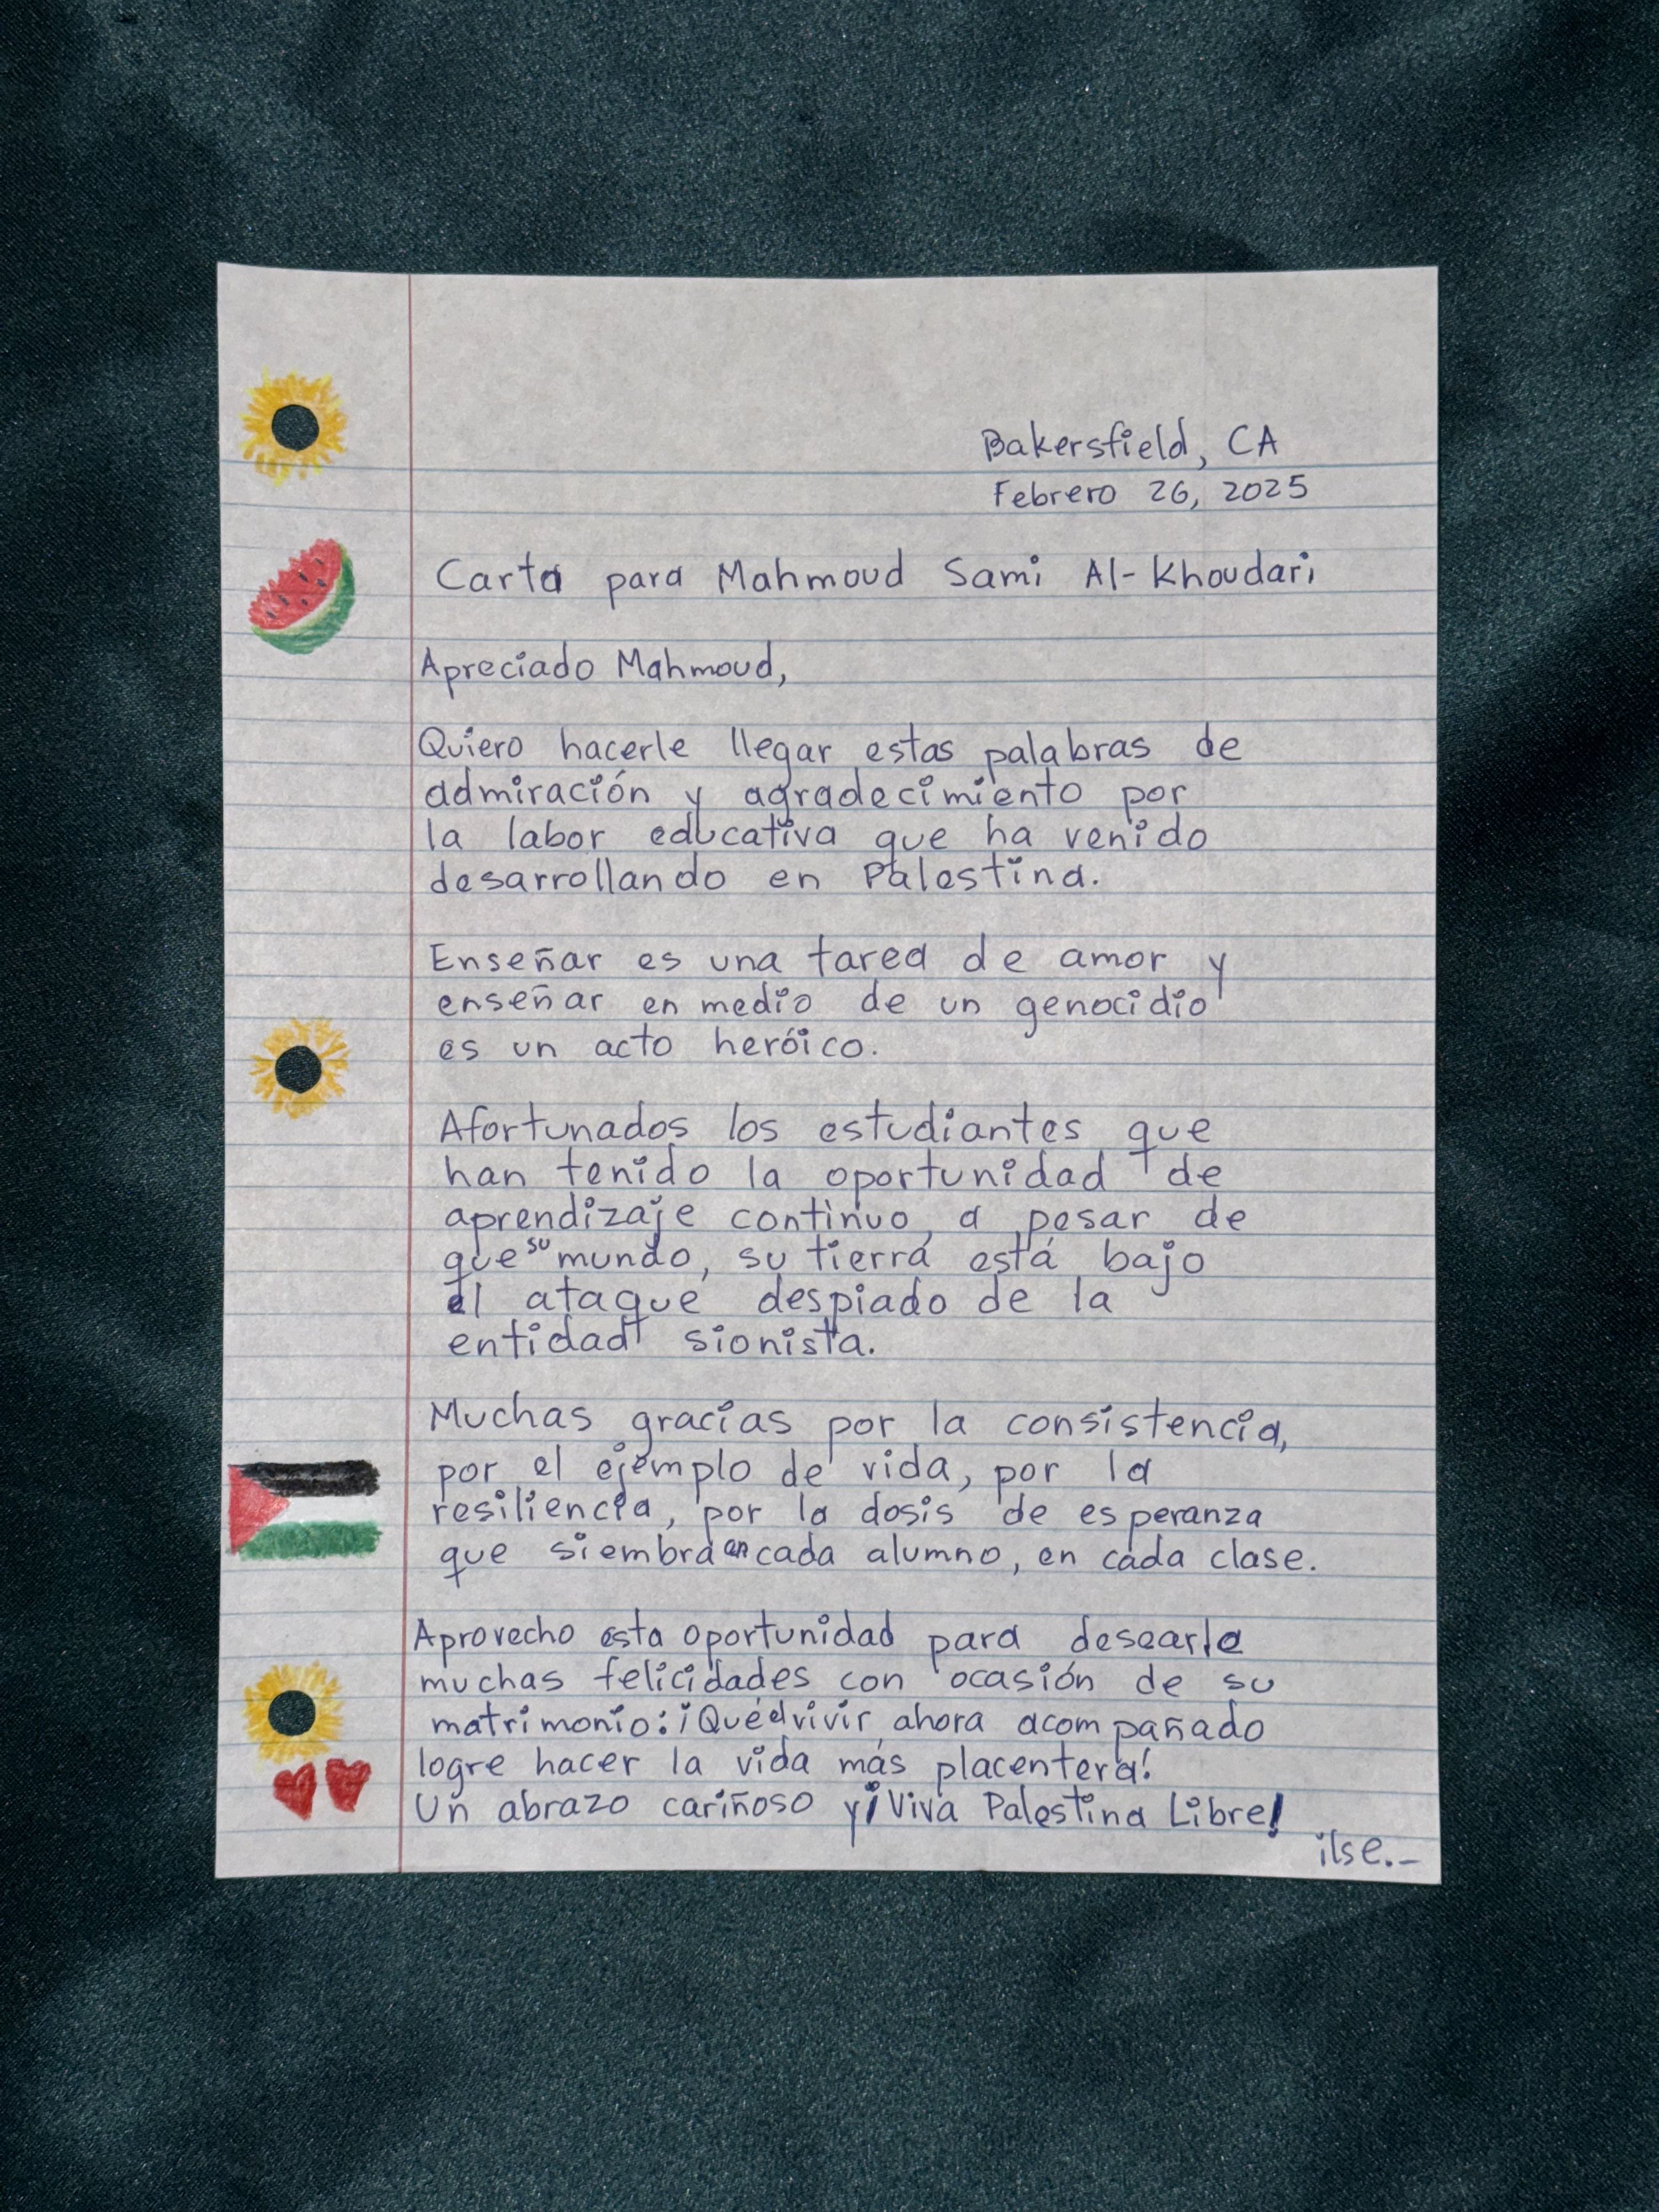 Bakersfield, CA
Febrero 26, 2025
Carta para Mahmoud Sami Al-Khoudari
Apreciado Mahmoud,
Quiero hacerle llegar estas palabras de
admiración y agradecimiento por
la labor educativa que ha venido
desarrollando en Palestina.
Enseñar es una tarea de amor y
enseñar en medio de un genocidio
es un acto heróico.
Afortunados los estudiantes que
han tenido la oportunidad de
aprendizaje continuo, a pesar de
que su mundo, su tierra está bajo
el ataque despiado de la
entidad sionista.
Muchas gracias por la consistencia,
por el ejemplo de vida, por la
resiliencia, por la dosis de esperanza
que siembra en cada alumno, en cada clase.
Aprovecho esta oportunidad para desearle
muchas felicidades con ocasión de su
matrimonio: ¡Qué el vivir ahora acompañado
logre hacer la vida más placentera!
Un abrazo cariñoso y ¡Viva Palestina Libre!
ilse.-